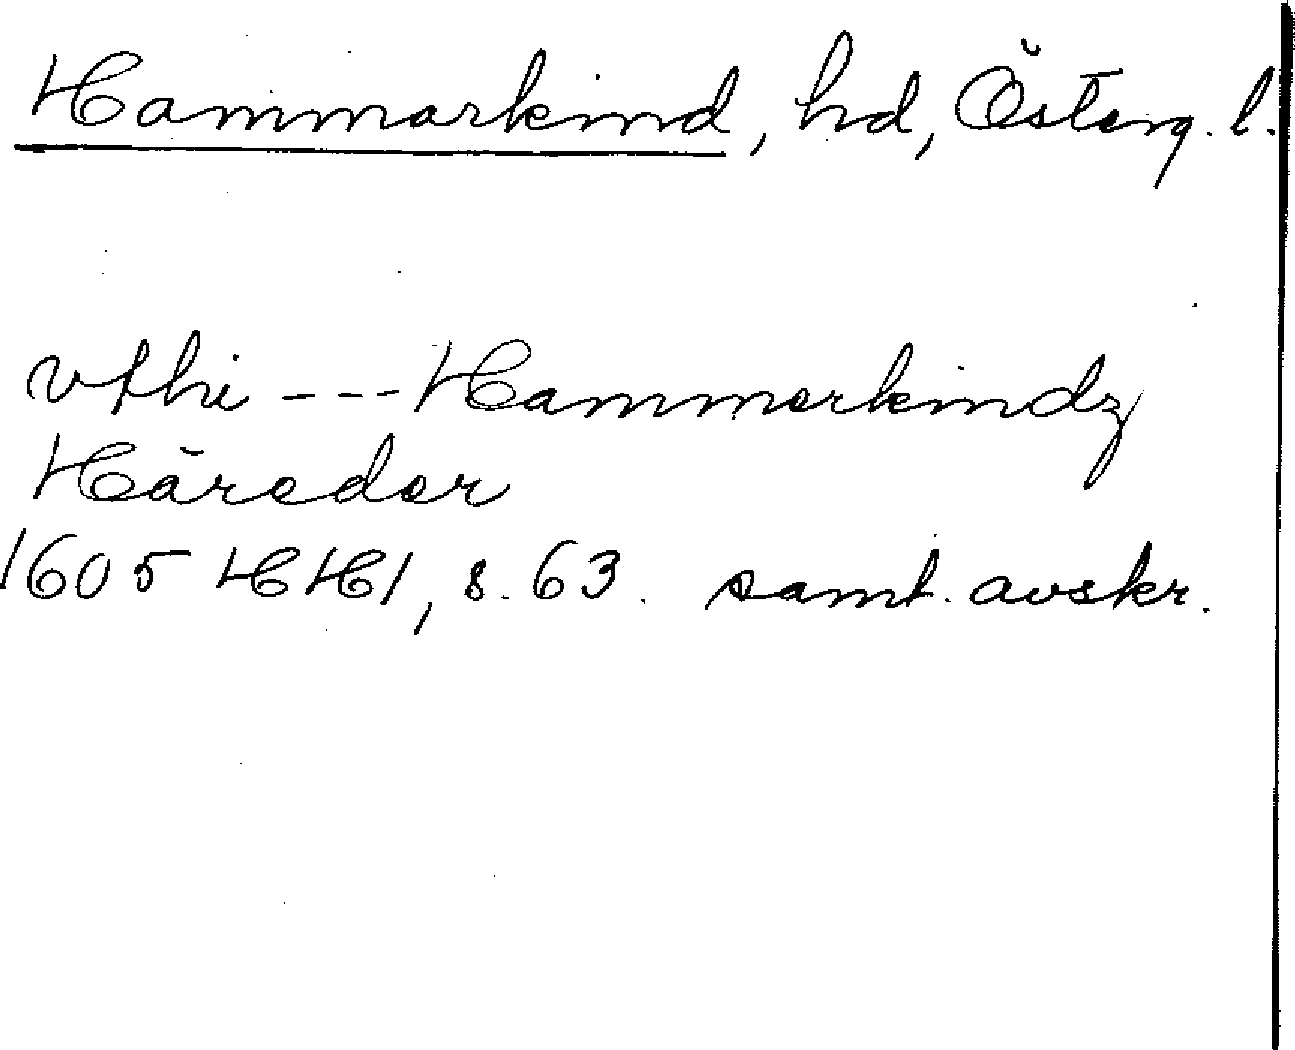 Hammarkind, hd, Österg. l.
vthi --- Hammerkindz
Häreder
1605 HH1, s. 63. samt. avskr.